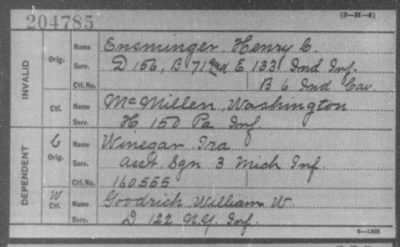 (3-21-4)
204785
INVALID
Orig. Name Ensminger, Henry C.
Serv. D 156, B 71 E 133 Ind Inf.
Ctf. No. B 6 Ind Cav.
Ctf. Name McMillen, Washington
Serv. H 150 Pa Inf.
DEPENDENT
C Orig. Name Winegar Ira
Serv. Asst Sgn 3 Mich Inf.
Ctf. No. 160555
W Ctf. Name Goodrich William W
Serv. D 122 N.Y. Inf.